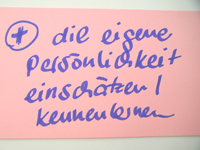 + die eigene
Persönlichkeit
einschätzen /
kennenlernen